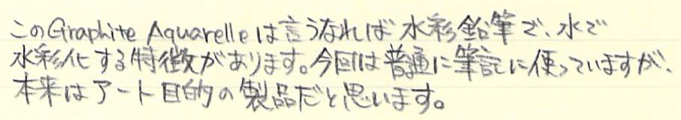 このGraphite Aquarelleは言うなれば水彩鉛筆で、水で
水彩化する特徴があります。今回は普通に筆記に使っていますが、
本来はアート目的の製品だと思います。